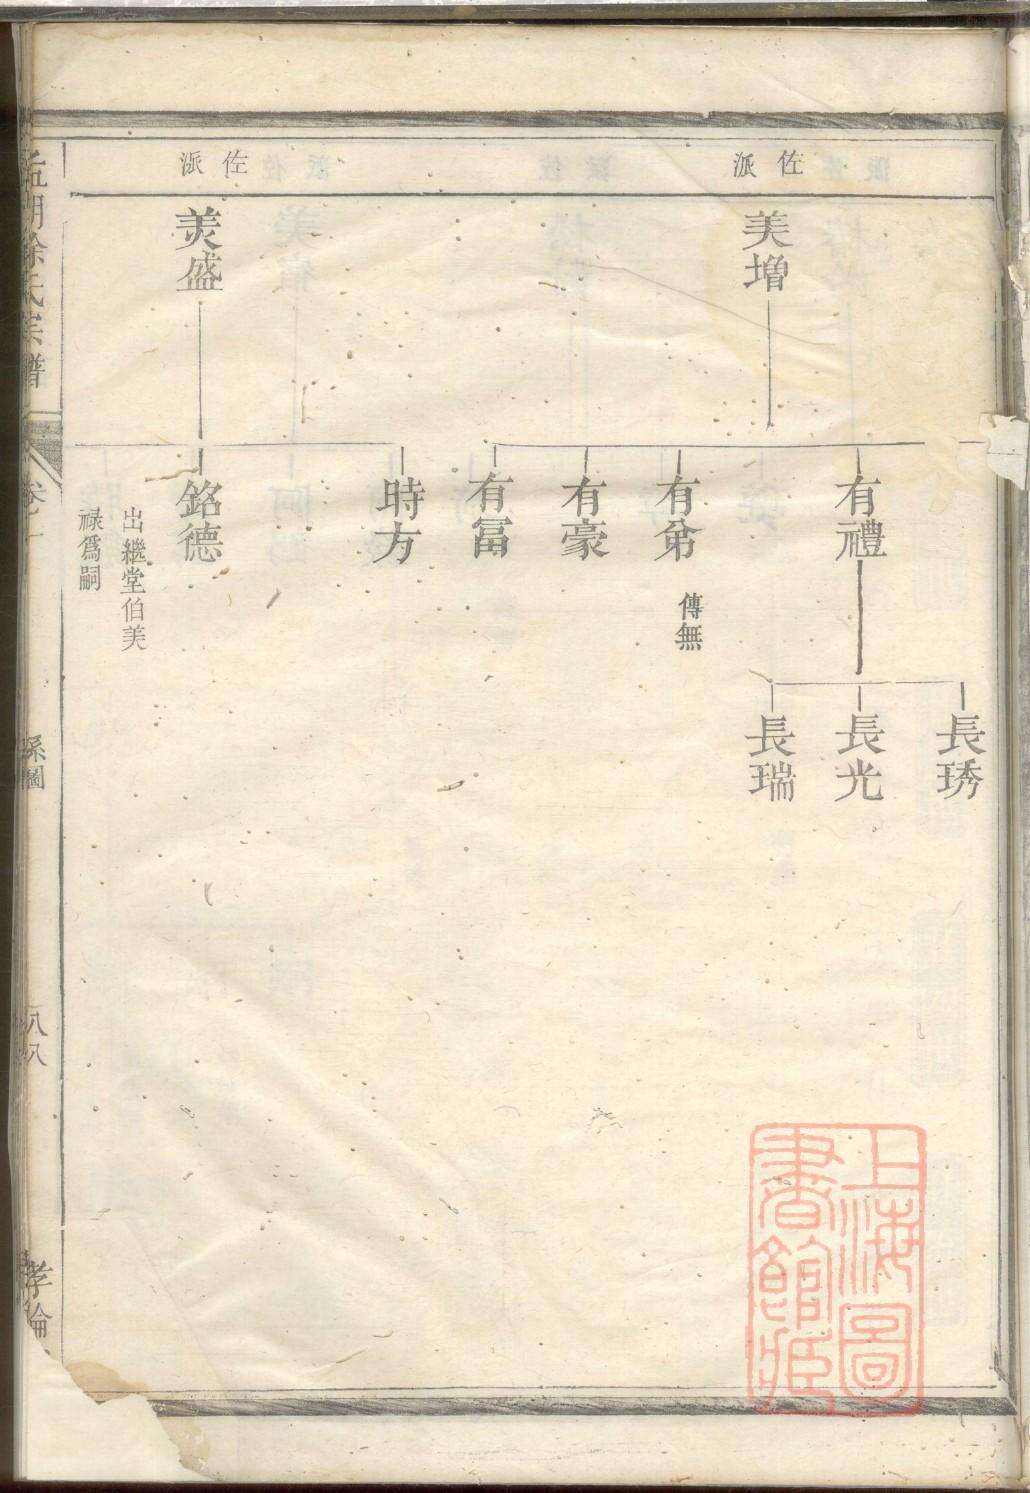 佐派
美增
有禮
長琇
長光
長瑞
有弟
無傳
有豪
有富
佐派
美盛
時方
銘德
出繼堂伯美
祿爲嗣
徐氏宗譜
系圖
八八
孝倫
上海圖
書館藏